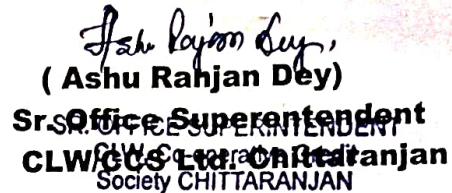 Ashu Ranjan Dey,
( Ashu Ranjan Dey)
Sr. Office Superentendont
SR. OFFICE SUPERINTENDENT
CLW/CCS Ltd. Chittaranjan
CLW Co-operative Credit
Society CHITTARANJAN